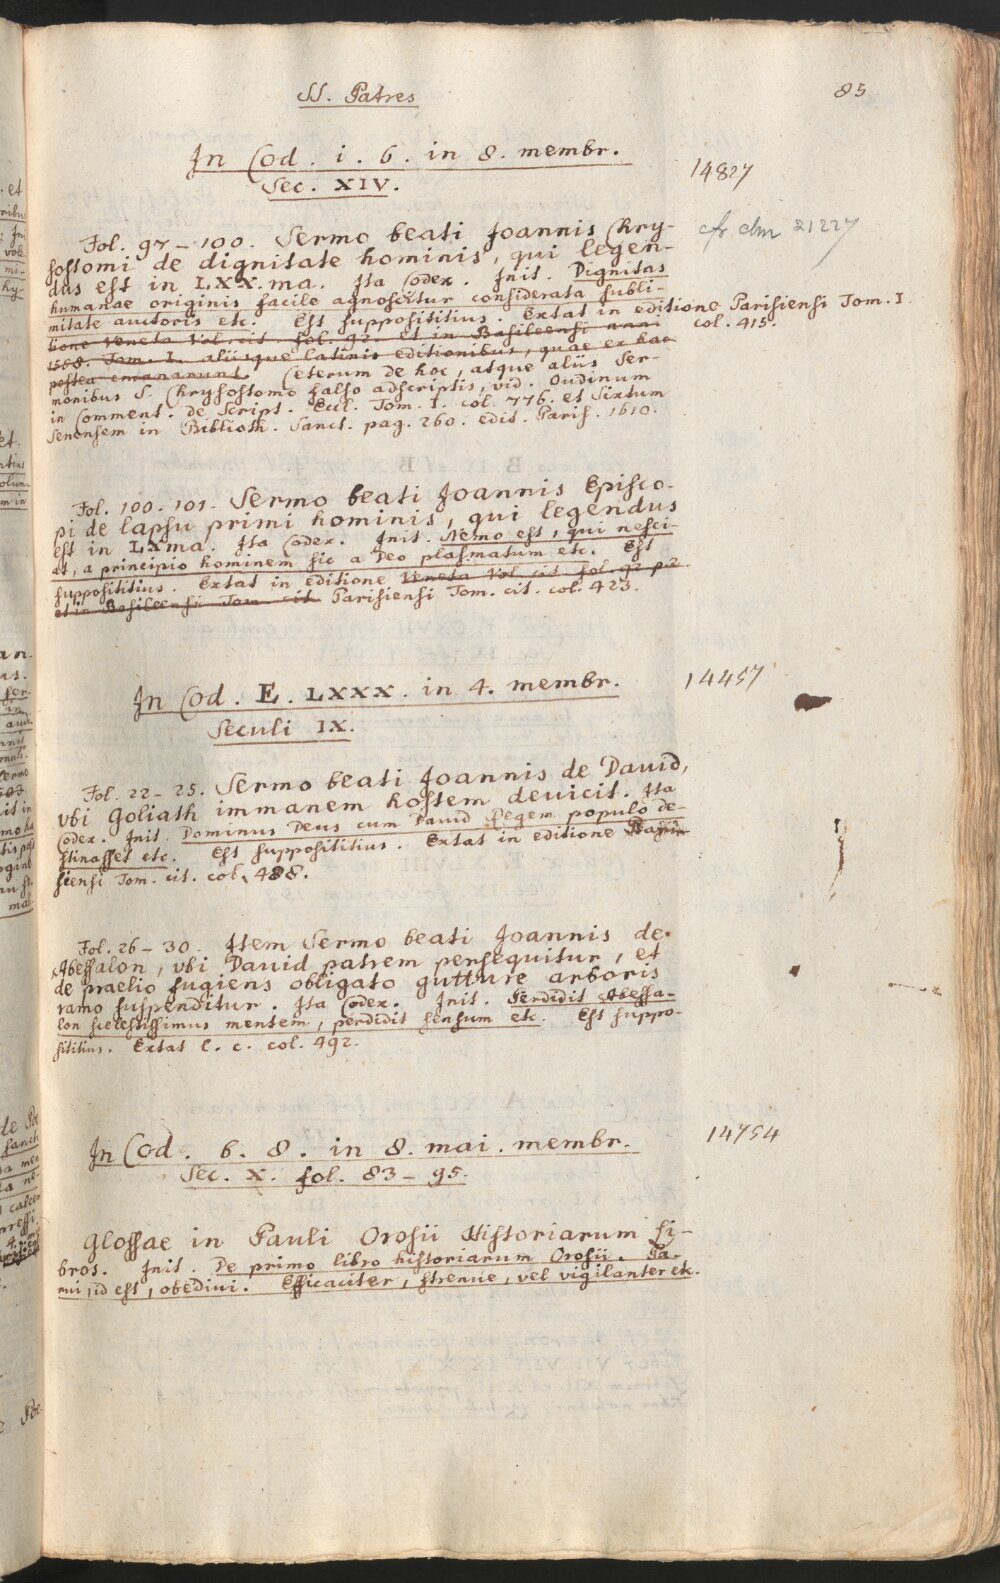 SS. Patres
85
In Cod. i. 6. in 8. membr.
14827
Sec. XIV.
Fol. 97-100. Sermo beati Joannis Chry-
cfr clm 21227
sostomi de dignitate hominis, qui legen-
dus est in LXX.ma. Ita Codex. Init. Dignitas
humanae originis facile agnoscitur considerata subli-
mitate auctoris etc. Est supposititius. Extat in editione Parisiensi Tom. I.
tione Veneta Vol. cit. fol. 92. et in Basileensi anni
col. 415.
1558. Tom. I. aliisque latinis editionibus, quae ex hac
postea emanarunt. Ceterum de hoc, atque aliis Ser-
monibus S. Chrysostomo falso adscriptis, vid. Oudinum
in Comment. de Script. Eccl. Tom. I. col. 776. et Sixtum
Senensem in Biblioth. Sanct. pag. 260. edit. Paris. 1610.
Fol. 100. 101. Sermo beati Joannis Episco-
pi de lapsu primi hominis, qui legendus
est in LXma. Ita Codex. Init. Nemo est, qui nesci-
at, a principio hominem sic a Deo plasmatum etc. Est
supposititius. Extat in editione Veneta Vol. cit. fol. 92 p. 2.
et in Basileensi Tom. cit. Parisiensi Tom. cit. col. 423.
In Cod. E. LXXX. in 4. membr.
14457
Seculi IX.
Fol. 22-25. Sermo beati Joannis de David,
vbi Goliath immanem hostem deuicit. Ita
Codex. Init. Dominus Deus cum David Regem populo de-
stinasset etc. Est supposititius. Extat in editione Pari-
siensi Tom. cit. col. 488.
Fol. 26-30. Item Sermo beati Joannis de
Abessalon, vbi David patrem persequitur, et
de praelio fugiens obligato gutture arboris
ramo suspenditur. Ita Codex. Init. Perdidit Abessa-
lon scelestissimus mentem, perdidit sensum etc. Est suppo-
sititius. Extat l. c. col. 492.
In Cod. b. 8. in 8. mai. membr.
14754
Sec. X. fol. 83-95.
Glossae in Pauli Orosii Historiarum Li-
bros. Init. De primo libro historiarum Orosii. Pa-
rui, id est, obediui. Efficaciter, strenue, vel vigilanter etc.